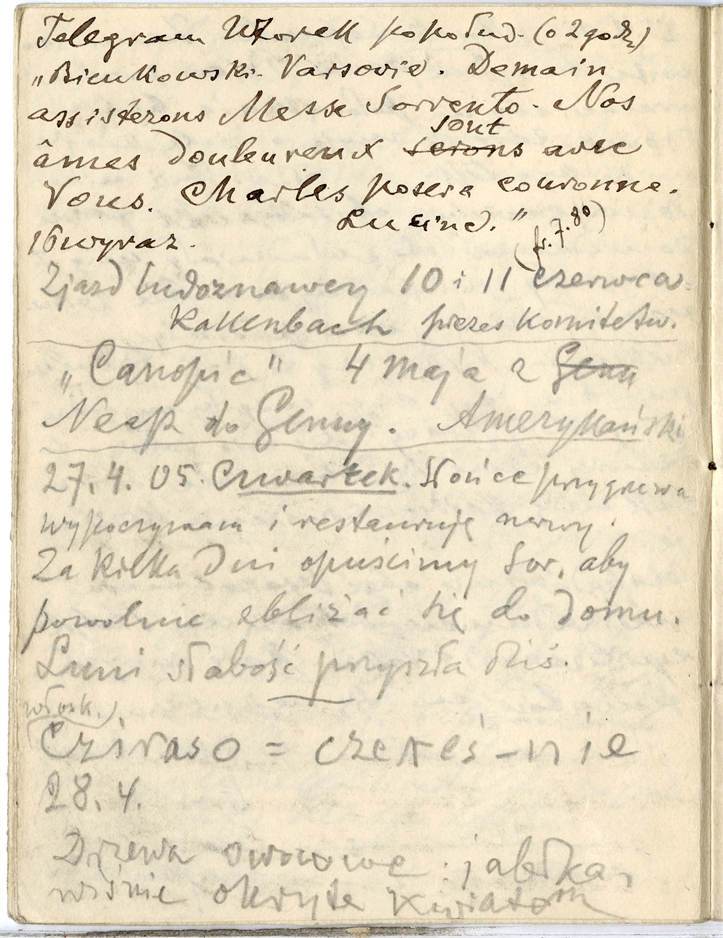 Telegram Wtorek popołud. (o 2 godz)
„Bieńkowski. Varsovie. Demain
assisterons Messe Sorrento. Nos
sont
âmes douleureux serons avec
Vous. Charles posera couronne.
Lucine."
16 wyraz. (fr. 7.80)
Zjazd ludoznawczy 10 i 11 czerwca
Kallenbach prezes komitetu.
„Canopic" 4 maja z Genu
Neap do Genuy. Amerykański
27.4.05. Czwartek. Słońce przygrzewa
wypoczywam i restauruję nerwy.
Za kilka dni opuścimy Sor, aby
powolnie zbliżać się do domu.
Luni słabość przyszła dziś.
włosk.)
Cziraso = czereś-nie
28.4.
Drzewa owocowe: jabłka,
wiśnie okryte kwiatem